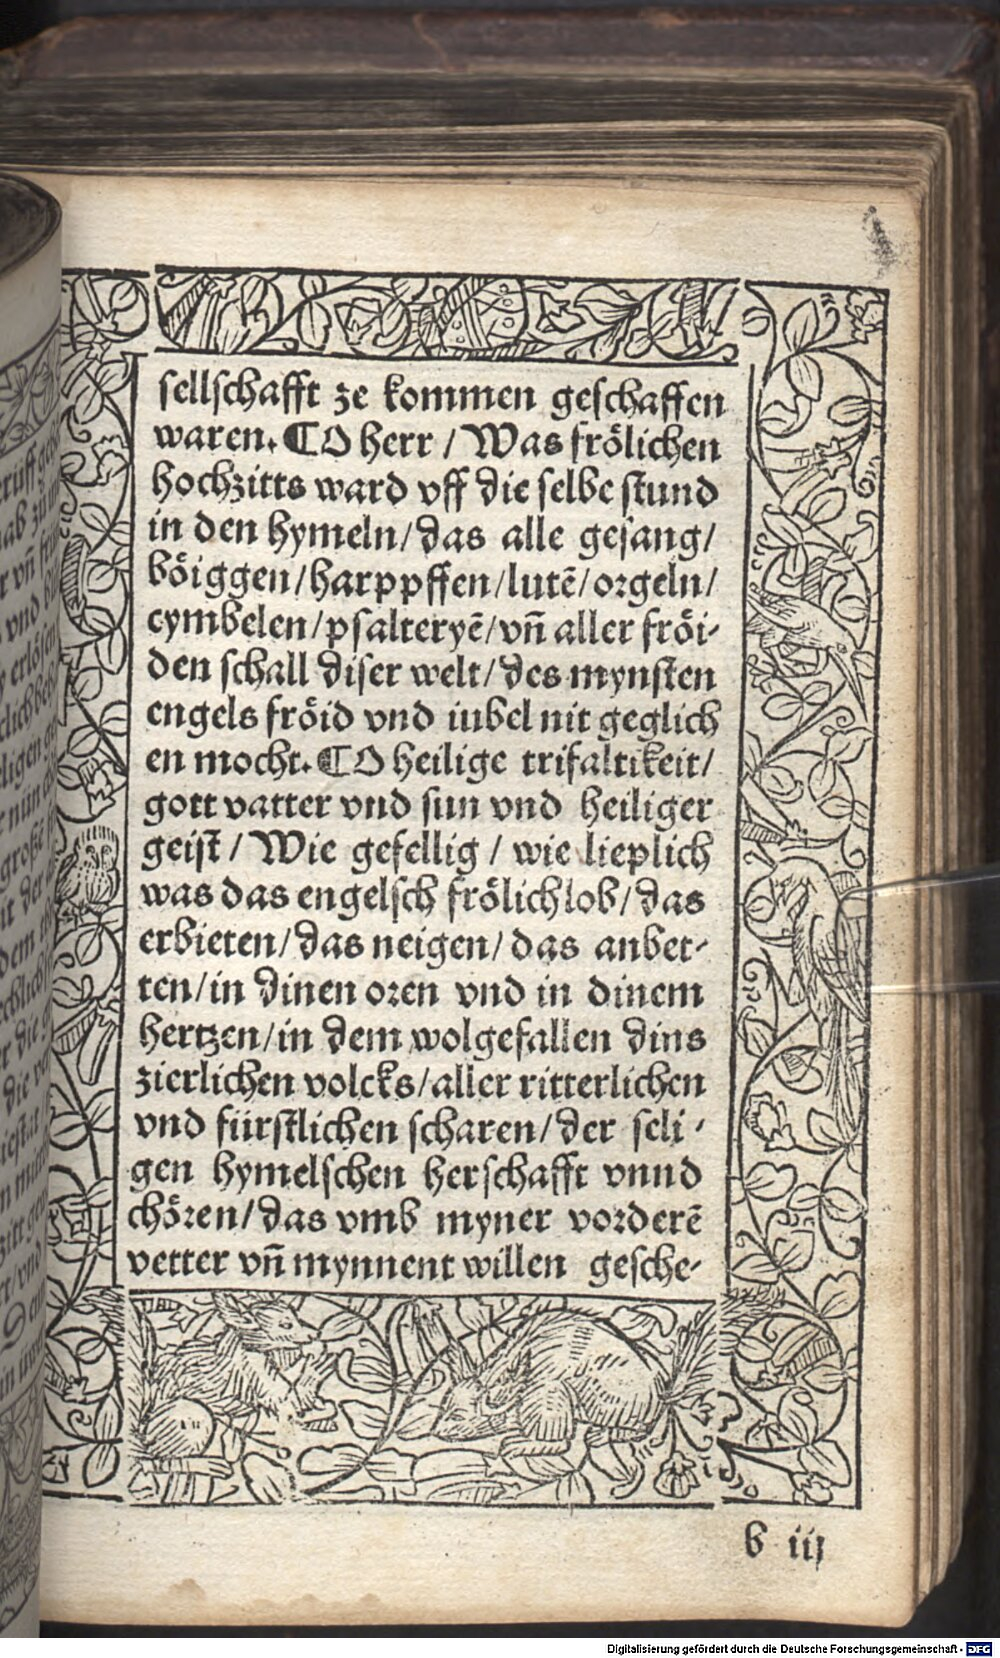 sellschafft ze kommen geschaffen
waren. ⸿O herr / Was frölichen
hochzitts ward vff die selbe stund
in den hymeln / das alle gesang /
böiggen / harppffen / lutē / orgeln /
cymbelen / psalteryē / vn̄ aller fröi-
den schall diser welt / des mynsten
engels fröid vnd iubel nit geglich
en mocht. ⸿O heilige trifaltikeit /
gott vatter vnd sun vnd heiliger
geist / Wie gefellig / wie lieplich
was das engelsch frölich lob / das
erbieten / das neigen / das anbet-
ten / in dinen oren vnd in dinem
hertzen / in dem wolgefallen dins
zierlichen volcks / aller ritterlichen
vnd fürstlichen scharen / der seli-
gen hymelschen herschafft vnnd
chören / das vmb myner vorderē
vetter vn̄ mynnent willen gesche-
b iij
Digitalisierung gefördert durch die Deutsche Forschungsgemeinschaft - DFG